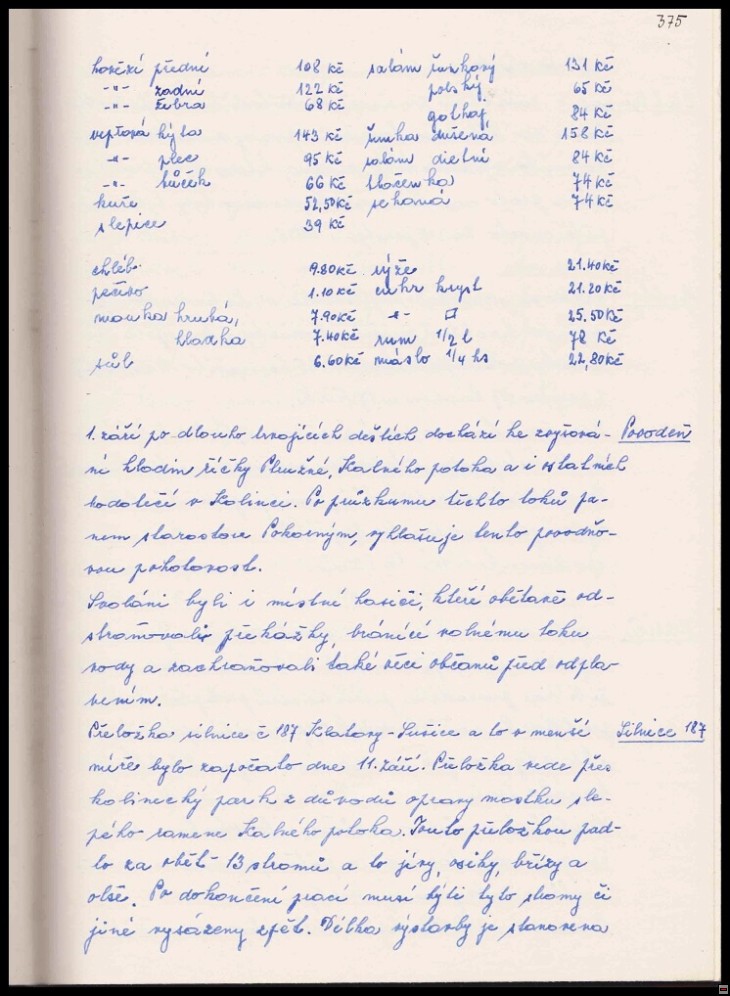 375
hovězí přední 108 Kč salám šunkový 131 Kč
-"- zadní 122 Kč polský 65 Kč
-"- žebra 68 Kč gothaj 84 Kč
vepřová kýta 143 Kč šunka dušená 158 Kč
-"- plec 95 Kč salám dietní 84 Kč
-"- bůček 66 Kč tlačenka 74 Kč
kuře 52,50 Kč sekaná 74 Kč
slepice 39 Kč
chléb 9.80 Kč rýže 21.40 Kč
pečivo 1.10 Kč cukr kryst 21.20 Kč
mouka hrubá, 7.90 Kč -"- □ 25.50 Kč
hladká 7.40 Kč rum 1/2 l 78 Kč
sůl 6.60 Kč máslo 1/4 kg 22,80 Kč
1. září po dlouho trvajících deštích dochází ke zvyšová- Povodeň
ní hladin říčky Plružné, Kalného potoka a i ostatních
vodotečí v Kolinci. Po průzkumu těchto toků pa-
nem starostou Pokorným, vyhlašuje tento povodňo-
vou pohotovost.
Svoláni byli i místní hasiči, kteří obětavě od-
straňovali překážky, bránící volnému toku
vody a zachraňovali také věci občanů před odpla-
vením.
Přeložka silnice č 187 Klatovy - Sušice a to v menší Silnice 187
míře bylo započato dne 11. září. Přeložka vede přes
kolinecký park z důvodů opravy mostku sle-
pého ramene Kalného potoka. Touto přeložkou pad-
lo za oběť 13 stromů a to jívy, osiky, břízy a
olše. Po dokončení prací musí býti tyto stromy či
jiné vysázeny zpět. Délka výstavby je stanovena